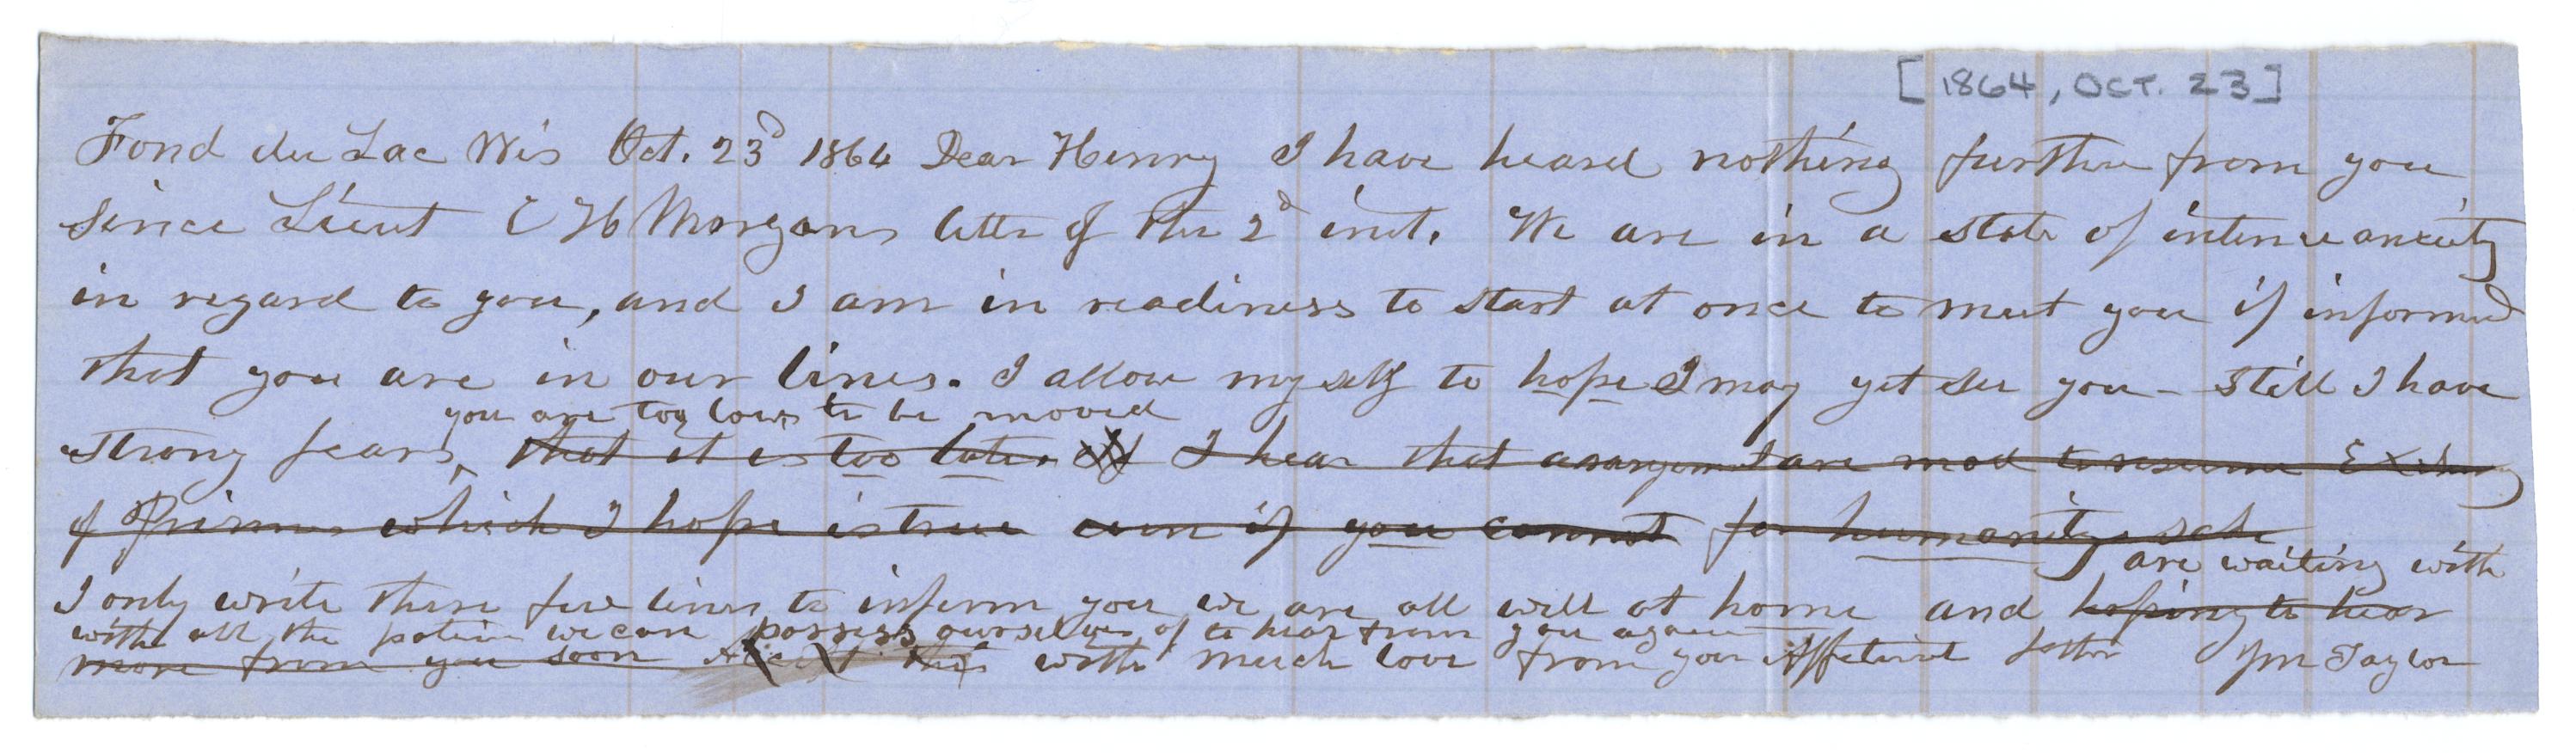 [1864, OCT. 23]
Fond du Lac Wis Oct. 23d 1864 Dear Henry I have heard nothing further from you
since Lieut C H Morgans letter of the 2d inst. We are in a state of intense anxiety
in regard to you, and I am in readiness to start at once to meet you if informed
that you are in our lines. I allow myself to hope I may yet see you - still I have
you are too low to be moved
strong fears, that it is too late. I hear that arangemts are mad to resume Exchang
of Prisoners which I hope is true even if you cannot for humanitys sake
are waiting with
I only write these few lines to inform you we are all well at home and hoping to hear
with all the patien we can possess ourselves of to hear from you again
more from you soon Accept this with much love from your Affectinat father Jm Taylor